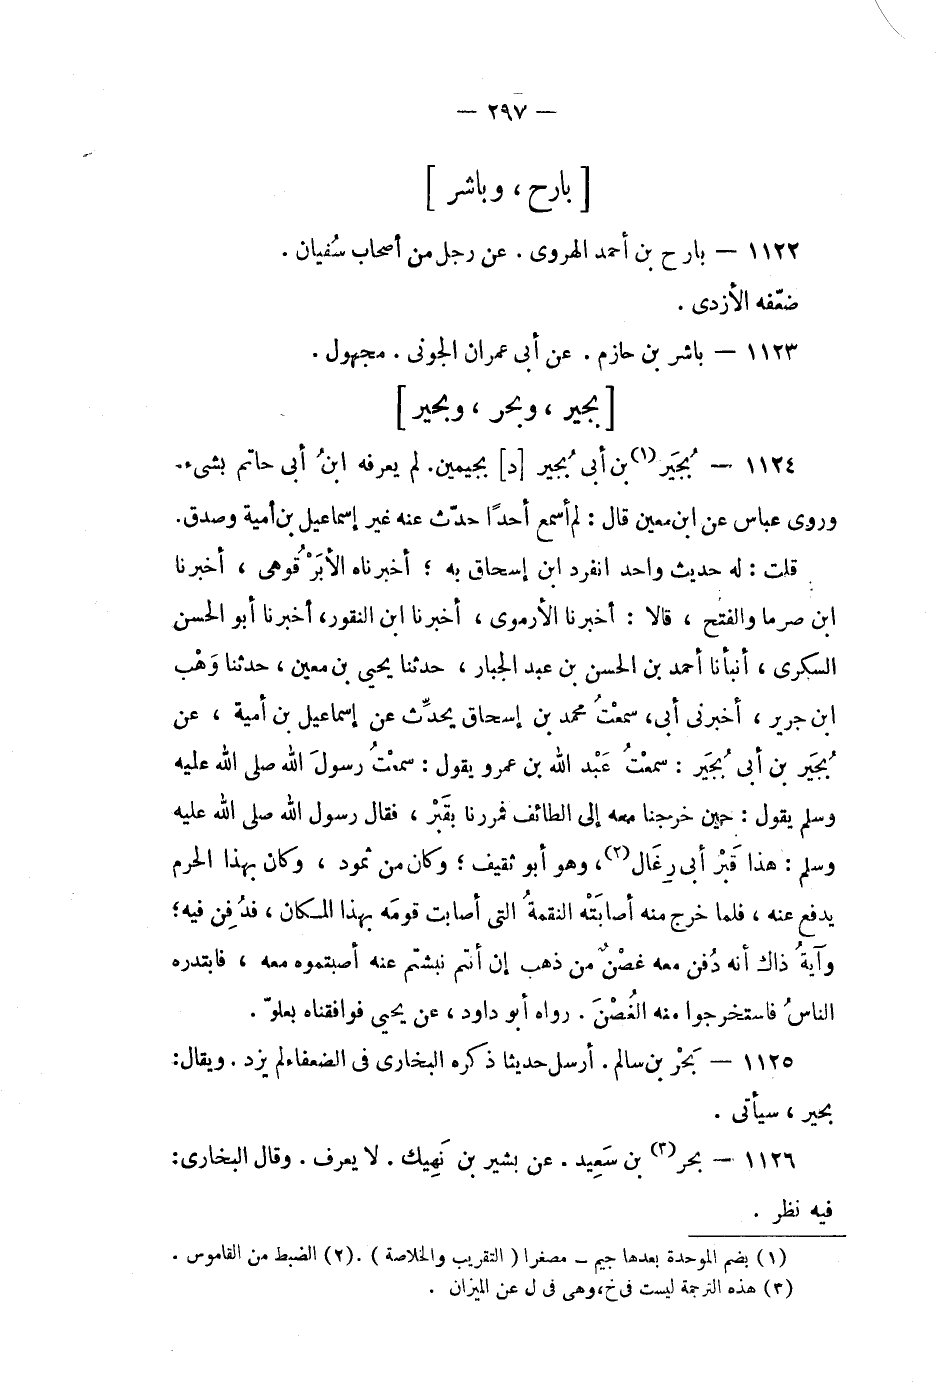 — ٢٩٧ —
[ بارح ، وباشر ]
١١٢٢ — بارح بن أحمد الهروى . عن رجل من أصحاب سُفيان .
ضعّفه الأزدى .
١١٢٣ — باشر بن حازم . عن أبى عمران الجونى . مجهول .
[ بجير ، وبحر ، وبحير ]
١١٢٤ — بُجَير(١) بن أبى بُجير [د] بجيمين. لم يعرفه ابنُ أبى حاتم بشىء.
وروى عباس عن ابن معين قال : لم أسمع أحدًا حدّث عنه غير إسماعيل بن أمية وصدق.
قلت : له حديث واحد انفرد ابن إسحاق به ؛ أخبرناه الأبَرْقُوهى ، أخبرنا
ابن صرما والفتح ، قالا : أخبرنا الأرموى ، أخبرنا ابن النقور، أخبرنا أبو الحسن
السكرى ، أنبأنا أحمد بن الحسن بن عبد الجبار ، حدثنا يحيى بن معين ، حدثنا وَهْب
ابن جرير ، أخبرنى أبى، سمعْتُ محمد بن إسحاق يحدِّث عن إسماعيل بن أمية ، عن
بُجَير بن أبى بُجَير : سمعْتُ عَبْد الله بن عمرو يقول : سمعْتُ رسولَ الله صلى الله عليه
وسلم يقول : حين خرجنا معه إلى الطائف فمررنا بقَبْر ، فقال رسول الله صلى الله عليه
وسلم : هذا قَبْر أبى رِغَال(٢)، وهو أبو ثقيف ؛ وكان من ثمود ، وكان بهذا الحرم
يدفع عنه ، فلما خرج منه أصابَتْه النقمةُ التى أصابت قومَه بهذا المكان ، فدُفِن فيه؛
وآيةُ ذاك أنه دُفن معه غصْنٌ من ذهب إن أنتم نبشتم عنه أصبتموه معه ، فابتدره
الناسُ فاستخرجوا منه الغُصْنَ . رواه أبو داود ، عن يحيى فوافقناه بعلوّ .
١١٢٥ — بَحْر بن سالم . أرسل حديثا ذكره البخارى فى الضعفاء لم يزد . ويقال:
بحير ، سيأتى .
١١٢٦ — بحر(٣) بن سَعِيد . عن بشير بن نَهِيك . لا يعرف . وقال البخارى:
فيه نظر .
(١) بضم الموحدة بعدها جيم — مصغرا ( التقريب والخلاصة ) . (٢) الضبط من القاموس .
(٣) هذه الترجمة ليست فى خ، وهى فى ل عن الميزان .